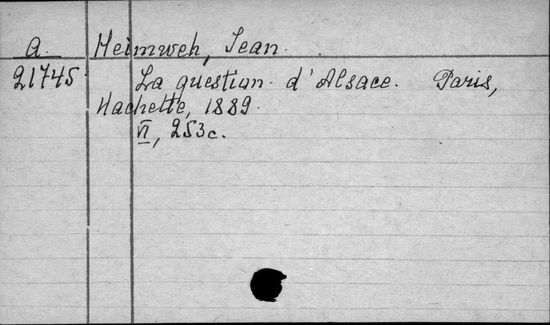 A. Heimweh, Jean.
21745 La question d'Alsace. Paris,
Hachette, 1889.
VI, 253c.